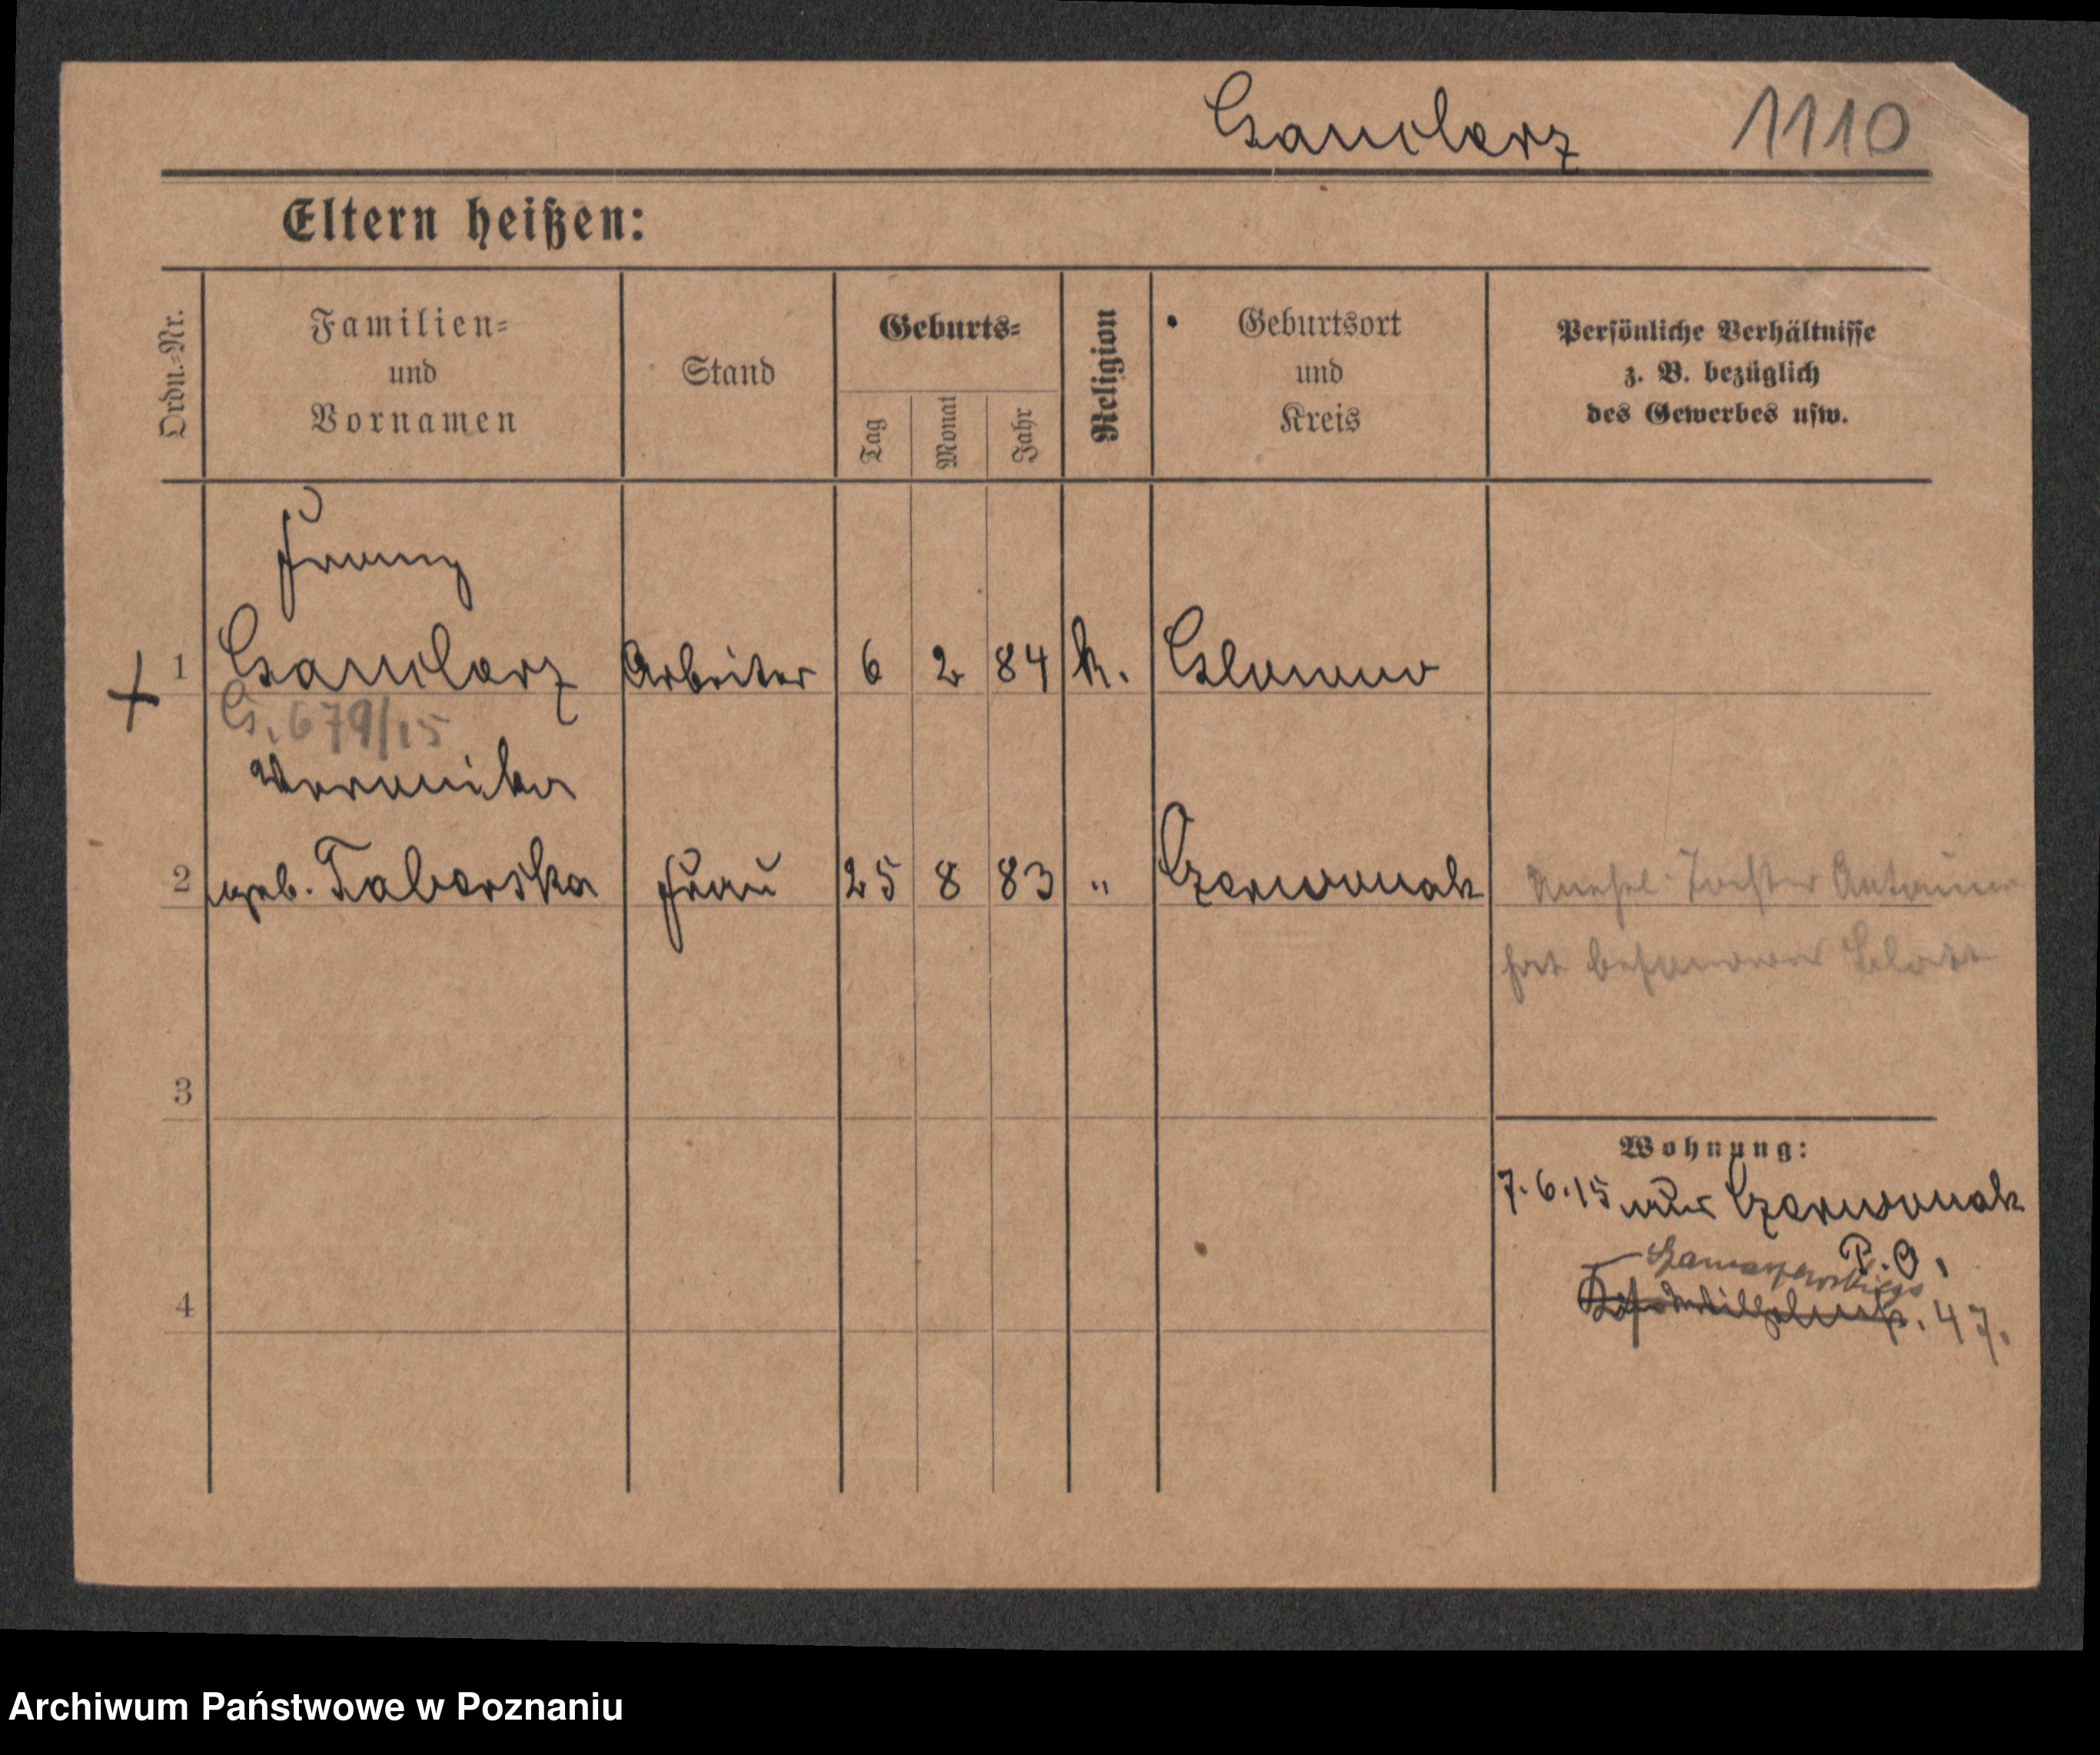 Gandlerz 1110
Eltern heißen:
Ordn.-Nr.
Familien-
und
Vornamen
Stand
Geburts-
Tag
Monat
Jahr
Religion
Geburtsort
und
Kreis
Persönliche Verhältnisse
z. B. bezüglich
des Gewerbes usw.
Franz
1 Gandlerz Arbeiter 6 2 84 k.
G. 679/15
Veronika
2 geb. Taborska Frau 25 8 83 " Czerwonak
unehel. Tochter Antonina
hat besonderes Blatt
3
Wohnung:
7.6.15 aus Czerwonak
P. O.
4
47.
Archiwum Państwowe w Poznaniu